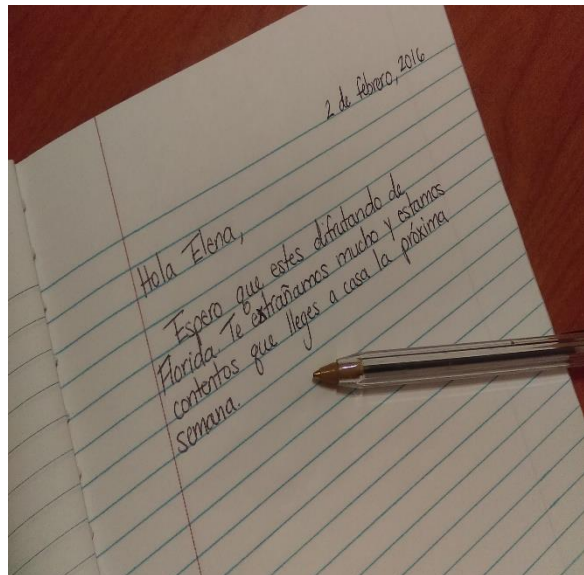 2 de febrero, 2016
Hola Elena,
Espero que estes difrutando de
Florida. Te extrañamos mucho y estamos
contentos que lleges a casa la próxima
semana.